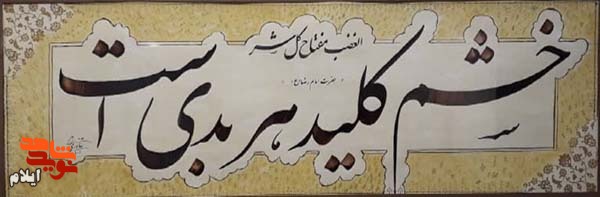 الغضب مفتاح کل شر
حضرت امام رضا (ع)
خشم کلید هر بدی است
نوید شاهد
ایلام